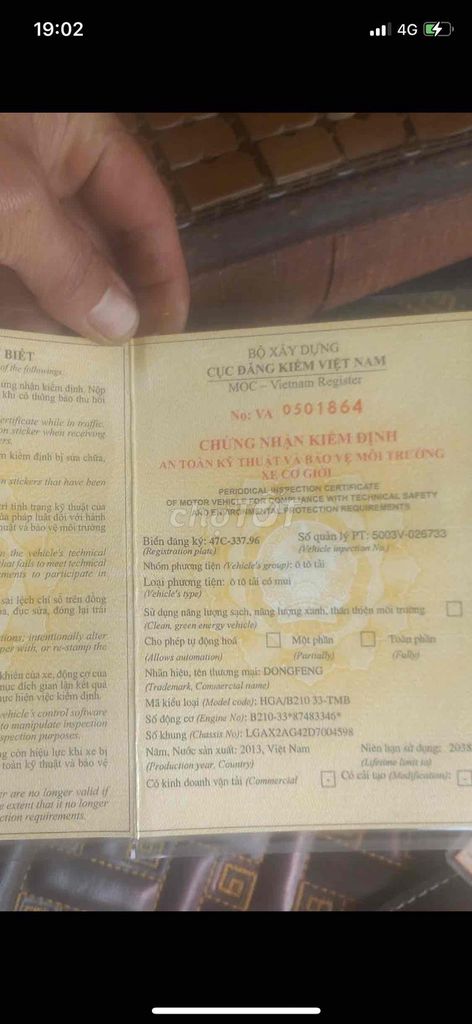 19:02
4G
BIẾT
of the followings.
ứng nhận kiểm định. Nộp
khi có thông báo thu hồi
ertificate while in traffic.
on sticker when receiving
ers.
m kiểm định bị sửa chữa,
n stickers that have been
trì tình trạng kỹ thuật của
của pháp luật đối với hành
thuật và bảo vệ môi trường
n the vehicle's technical
that fails to meet technical
ments to participate in
sai lệch chỉ số trên đồng
óa, đục sửa, đóng lại trái
tions; intentionally alter
per with, or re-stamp the
khiển của xe, động cơ của
mục đích gian lận kết quả
hực hiện việc kiểm định.
vehicle's control software
to manipulate inspection
spection purposes.
ng còn hiệu lực khi xe bị
toàn kỹ thuật và bảo vệ
er are no longer valid if
e extent that it no longer
ction requirements.
BỘ XÂY DỰNG
CỤC ĐĂNG KIỂM VIỆT NAM
MOC – Vietnam Register
No: VA 0501864
CHỨNG NHẬN KIỂM ĐỊNH
AN TOÀN KỸ THUẬT VÀ BẢO VỆ MÔI TRƯỜNG
XE CƠ GIỚI
PERIODICAL INSPECTION CERTIFICATE
OF MOTOR VEHICLE FOR COMPLIANCE WITH TECHNICAL SAFETY
AND ENVIRONMENTAL PROTECTION REQUIREMENTS
CHỢ TỐT
Biển đăng ký: 47C-337.96 Số quản lý PT: 5003V-026733
(Registration plate) (Vehicle inpection No.)
Nhóm phương tiện (Vehicle's group): ô tô tải
Loại phương tiện: ô tô tải có mui
(Vehicle's type)
Sử dụng năng lượng sạch, năng lượng xanh, thân thiện môi trường
(Clean, green energy vehicle)
Cho phép tự động hoá Một phần Toàn phần
(Allows automation) (Partially) (Fully)
Nhãn hiệu, tên thương mại: DONGFENG
(Trademark, Commercial name)
Mã kiểu loại (Model code): HGA/B210 33-TMB
Số động cơ (Engine No): B210-33*87483346*
Số khung (Chassis No): LGAX2AG42D7004598
Năm, Nước sản xuất: 2013, Việt Nam Niên hạn sử dụng: 2038
(Production year, Country) (Lifetime limit to)
Có kinh doanh vận tải (Commercial - Có cải tạo (Modification): -